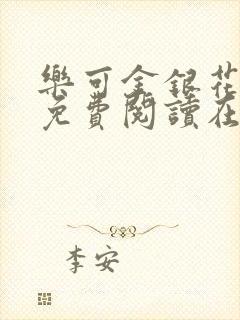 樂可金銀花
免費閱讀在
李安